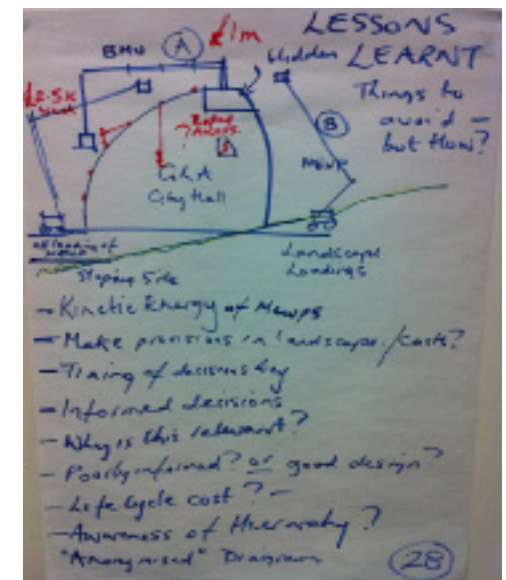 LESSONS
LEARNT
BMU
A
£1m
Hidden
Things to
avoid –
but How?
£2.5K
B
MEWP
?
Rope
Access
GLA
City Hall
Landscape
Loadings
Sloping Site
– Kinetic Energy of Mewps
– Make provisions in landscape/costs?
– Timing of decisions key
– Informed decisions
– Why is this relevant?
– Poorly informed? or good design?
– Life Cycle cost? –
– Awareness of Hierarchy?
"Anonymised" Diagram
28